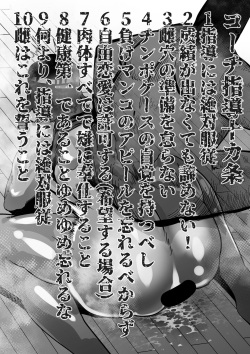 コーチ指導十カ条
1指導には絶対服従
2成績が出なくても諦めない！
3雌穴の準備を怠らない
4チンポケースの自覚を持つべし
5負けマンコのアピールを忘れるべからず
6自由恋愛は許可する（希望する場合）
7肉体すべてで雄に奉仕すること
8健康第一であることゆめゆめ忘れるな
9何より、指導には絶対服従
10雌はこれを誓うこと